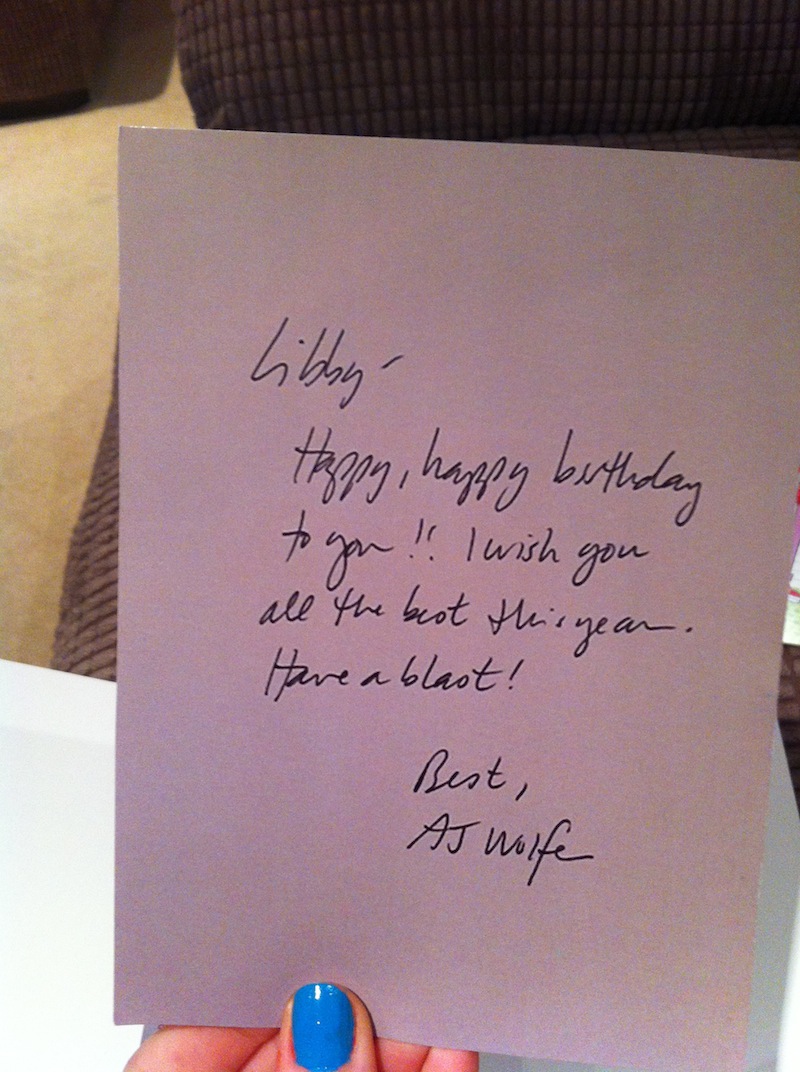 Libby -
Happy, happy birthday
to you!! I wish you
all the best this year.
Have a blast!
Best,
AJ Wolfe